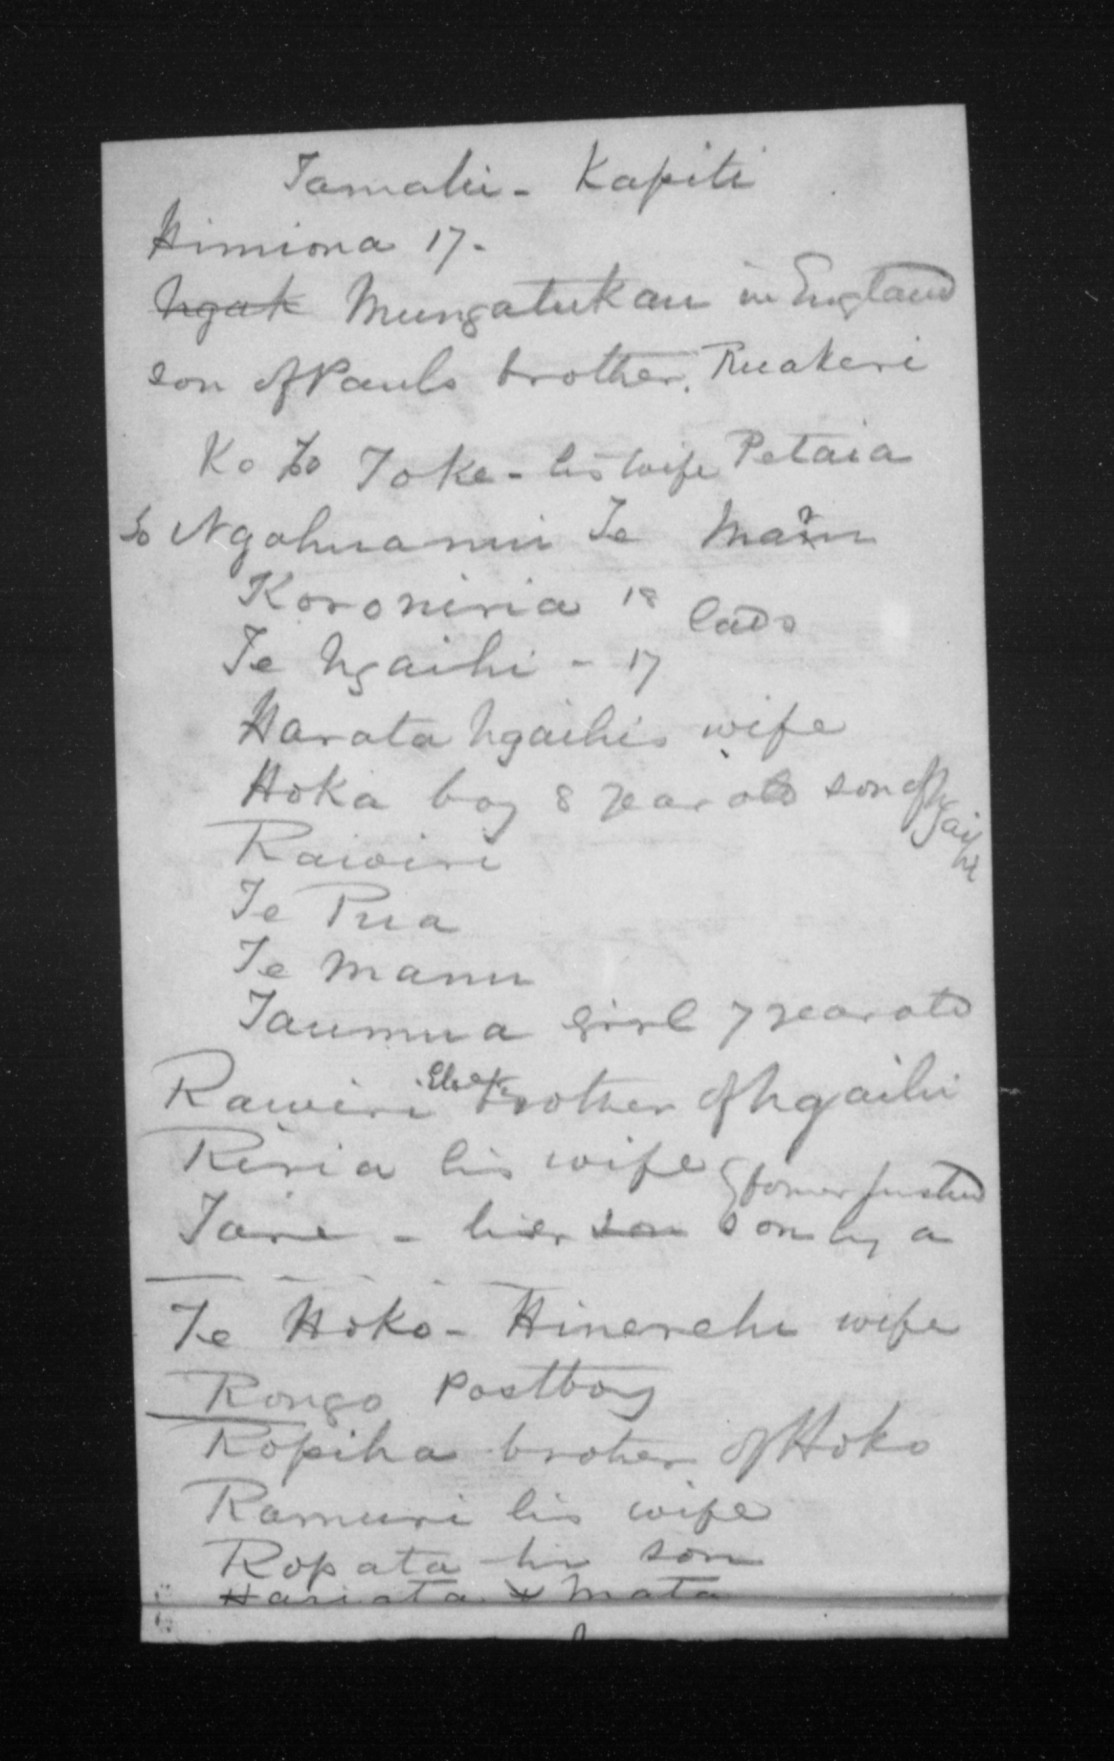 Tamahi - Kapiti
Himiona 17 -
Ngak Mungatukau in England
son of Pauls brother. Ruakeri
Ko To Toke - his wife Petaia
So Ngahuamui Te
Koroniria 18 lads
Te Ngaihi - 17
Harata Ngaihis wife
Hoka boy 8 year old son of Ngaihi
Rawiri
Te Pua
Te Manu
Taumua girl 7 year old
Rawiri Elder brother of Ngaihi
Riria his wife
Taire - her son son by a former husbd
Te Hoko - Hinerehi wife
Rongo Postboy
Ropiha brother of Hoko
Ramuri his wife
Ropata his son
Hariata & Mata